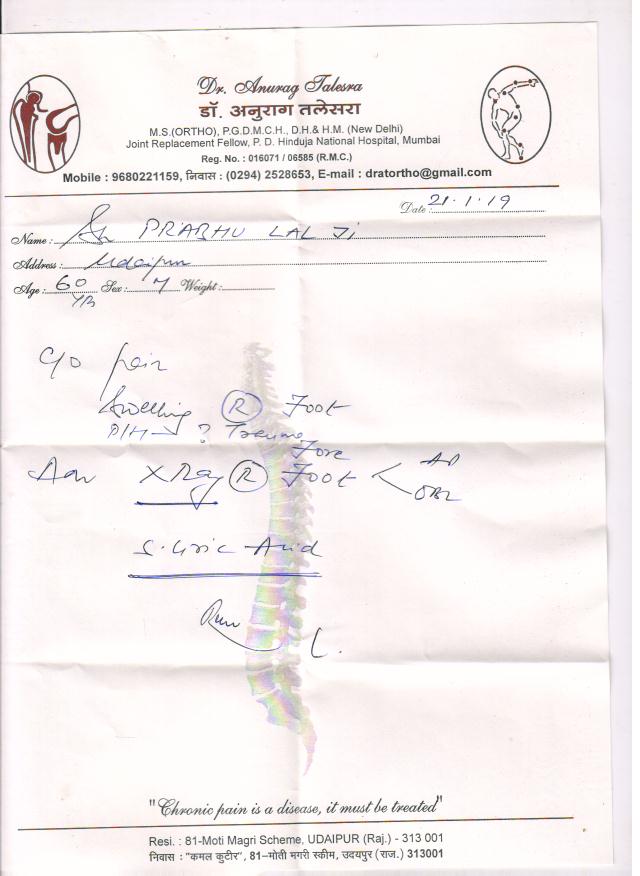 Dr. Anurag Talesra
डॉ. अनुराग तलेसरा
M.S.(ORTHO), P.G.D.M.C.H., D.H.& H.M. (New Delhi)
Joint Replacement Fellow, P. D. Hinduja National Hospital, Mumbai
Reg. No. : 016071 / 06585 (R.M.C.)
Mobile : 9680221159, निवास : (0294) 2528653, E-mail : dratortho@gmail.com
Date : 21.1.19
Name : PRABHU LAL JI
Address : Udaipur
Age : 60 Yrs Sex : M Weight :
C/O pain
Swelling R Foot
? Trauma
Fore
Adv X Ray R Foot < AP
OBL
S. Uric Acid
"Chronic pain is a disease, it must be treated"
Resi. : 81-Moti Magri Scheme, UDAIPUR (Raj.) - 313 001
निवास : "कमल कुटीर", 81–मोती मगरी स्कीम, उदयपुर (राज.) 313001